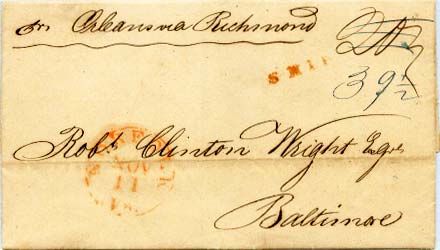 pr Orleans via Richmond
SHIP
39½
Robt. Clinton Wright Esqre
NOV
11
Baltimore